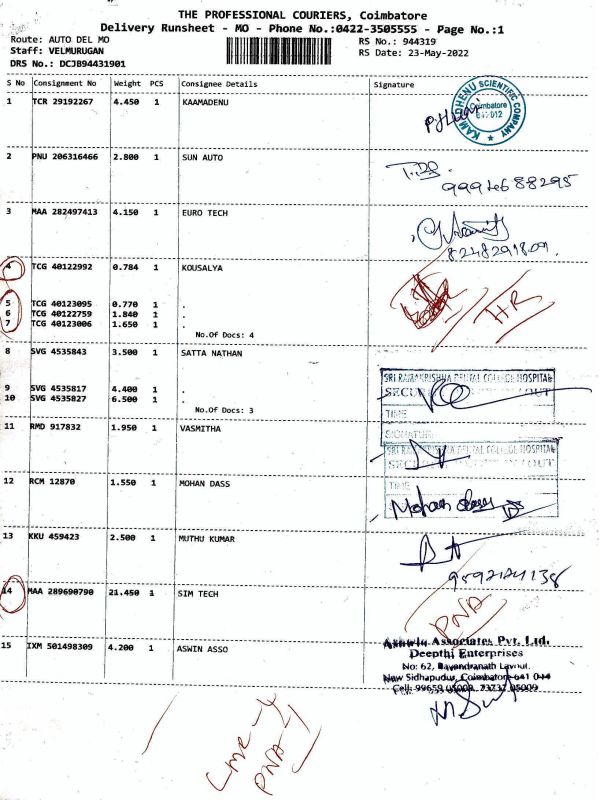 THE PROFESSIONAL COURIERS, Coimbatore
Delivery Runsheet - MO - Phone No.:0422-3505555 - Page No.:1
Route: AUTO DEL MO
RS No.: 944319
Staff: VELMURUGAN
RS Date: 23-May-2022
DRS No.: DCJB94431901
S No Consignment No Weight PCS Consignee Details Signature
1 TCR 29192267 4.450 1 KAAMADENU
KAMADHENU SCIENTIFIC COMPANY
Coimbatore
2 PNU 206316466 2.800 1 SUN AUTO
3 MAA 282497413 4.150 1 EURO TECH
8248291809.
4 TCG 40122992 0.784 1 KOUSALYA
HR
5 TCG 40123095 0.770 1 .
6 TCG 40122759 1.840 1 .
7 TCG 40123006 1.650 1 .
No.Of Docs: 4
8 SVG 4535843 3.500 1 SATTA NATHAN
SRI RAMAKRISHNA DENTAL COLLEGE HOSPITAL
OUT
TIME
9 SVG 4535817 4.400 1 .
10 SVG 4535827 6.500 1 .
No.Of Docs: 3
SIGNATURE
11 RMD 917832 1.950 1 VASMITHA
SRI RAMAKRISHNA DENTAL COLLEGE HOSPITAL
OUT
TIME
12 RCM 12870 1.550 1 MOHAN DASS
Mohan dass
13 KKU 459423 2.500 1 MUTHU KUMAR
14 MAA 289690790 21.450 1 SIM TECH
PNA
15 IXM 501498309 4.200 1 ASWIN ASSO
Associates Pvt. Ltd.
Deepthi Enterprises
No: 62, Ravendranath Layout.
New Sidhapudur, Coimbatore-641 044
Cell: 99659 05009, 73737 05009
PNA-1